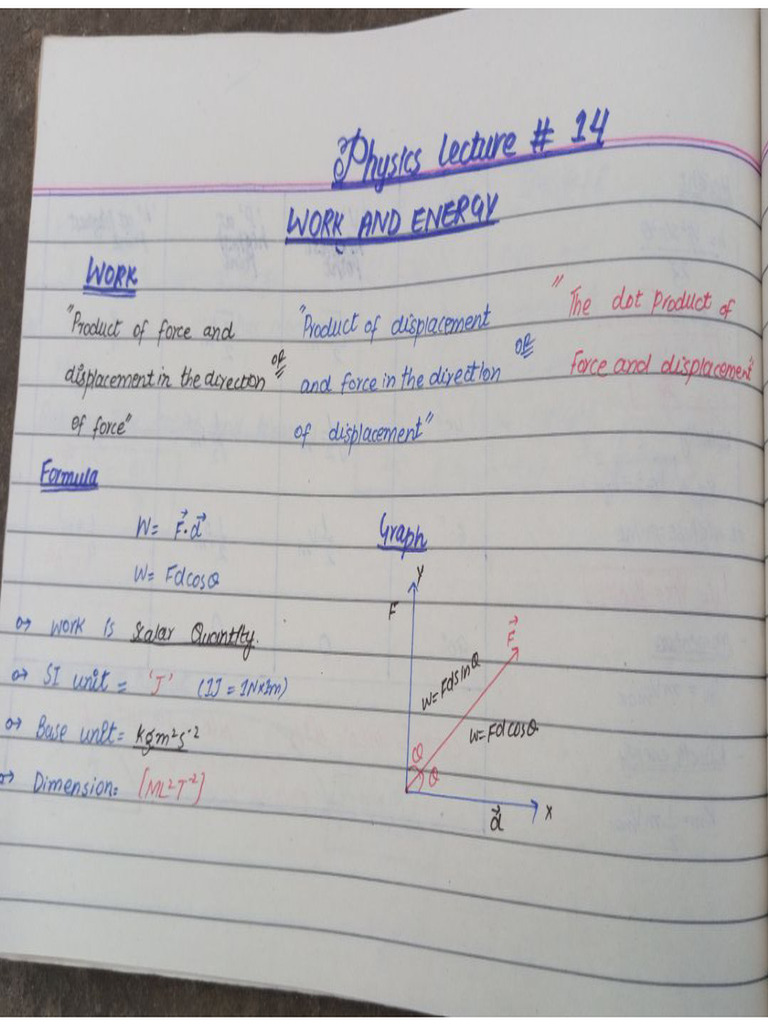 Physics Lecture # 14
WORK AND ENERGY
WORK
"Product of force and
displacement in the direction
of force"
or
"Product of displacement
and force in the direction
of displacement"
or
"The dot product of
Force and displacement"
Formula
W= F⃗.d⃗
W= Fdcosθ
→ Work is Scalar Quantity.
→ SI unit = 'J' (1J = 1N×1m)
→ Base unit= kgm²s⁻²
→ Dimension= [ML²T⁻²]
Graph
y
F
F⃗
W=Fdsinθ
W=Fdcosθ
θ
θ
d⃗
x